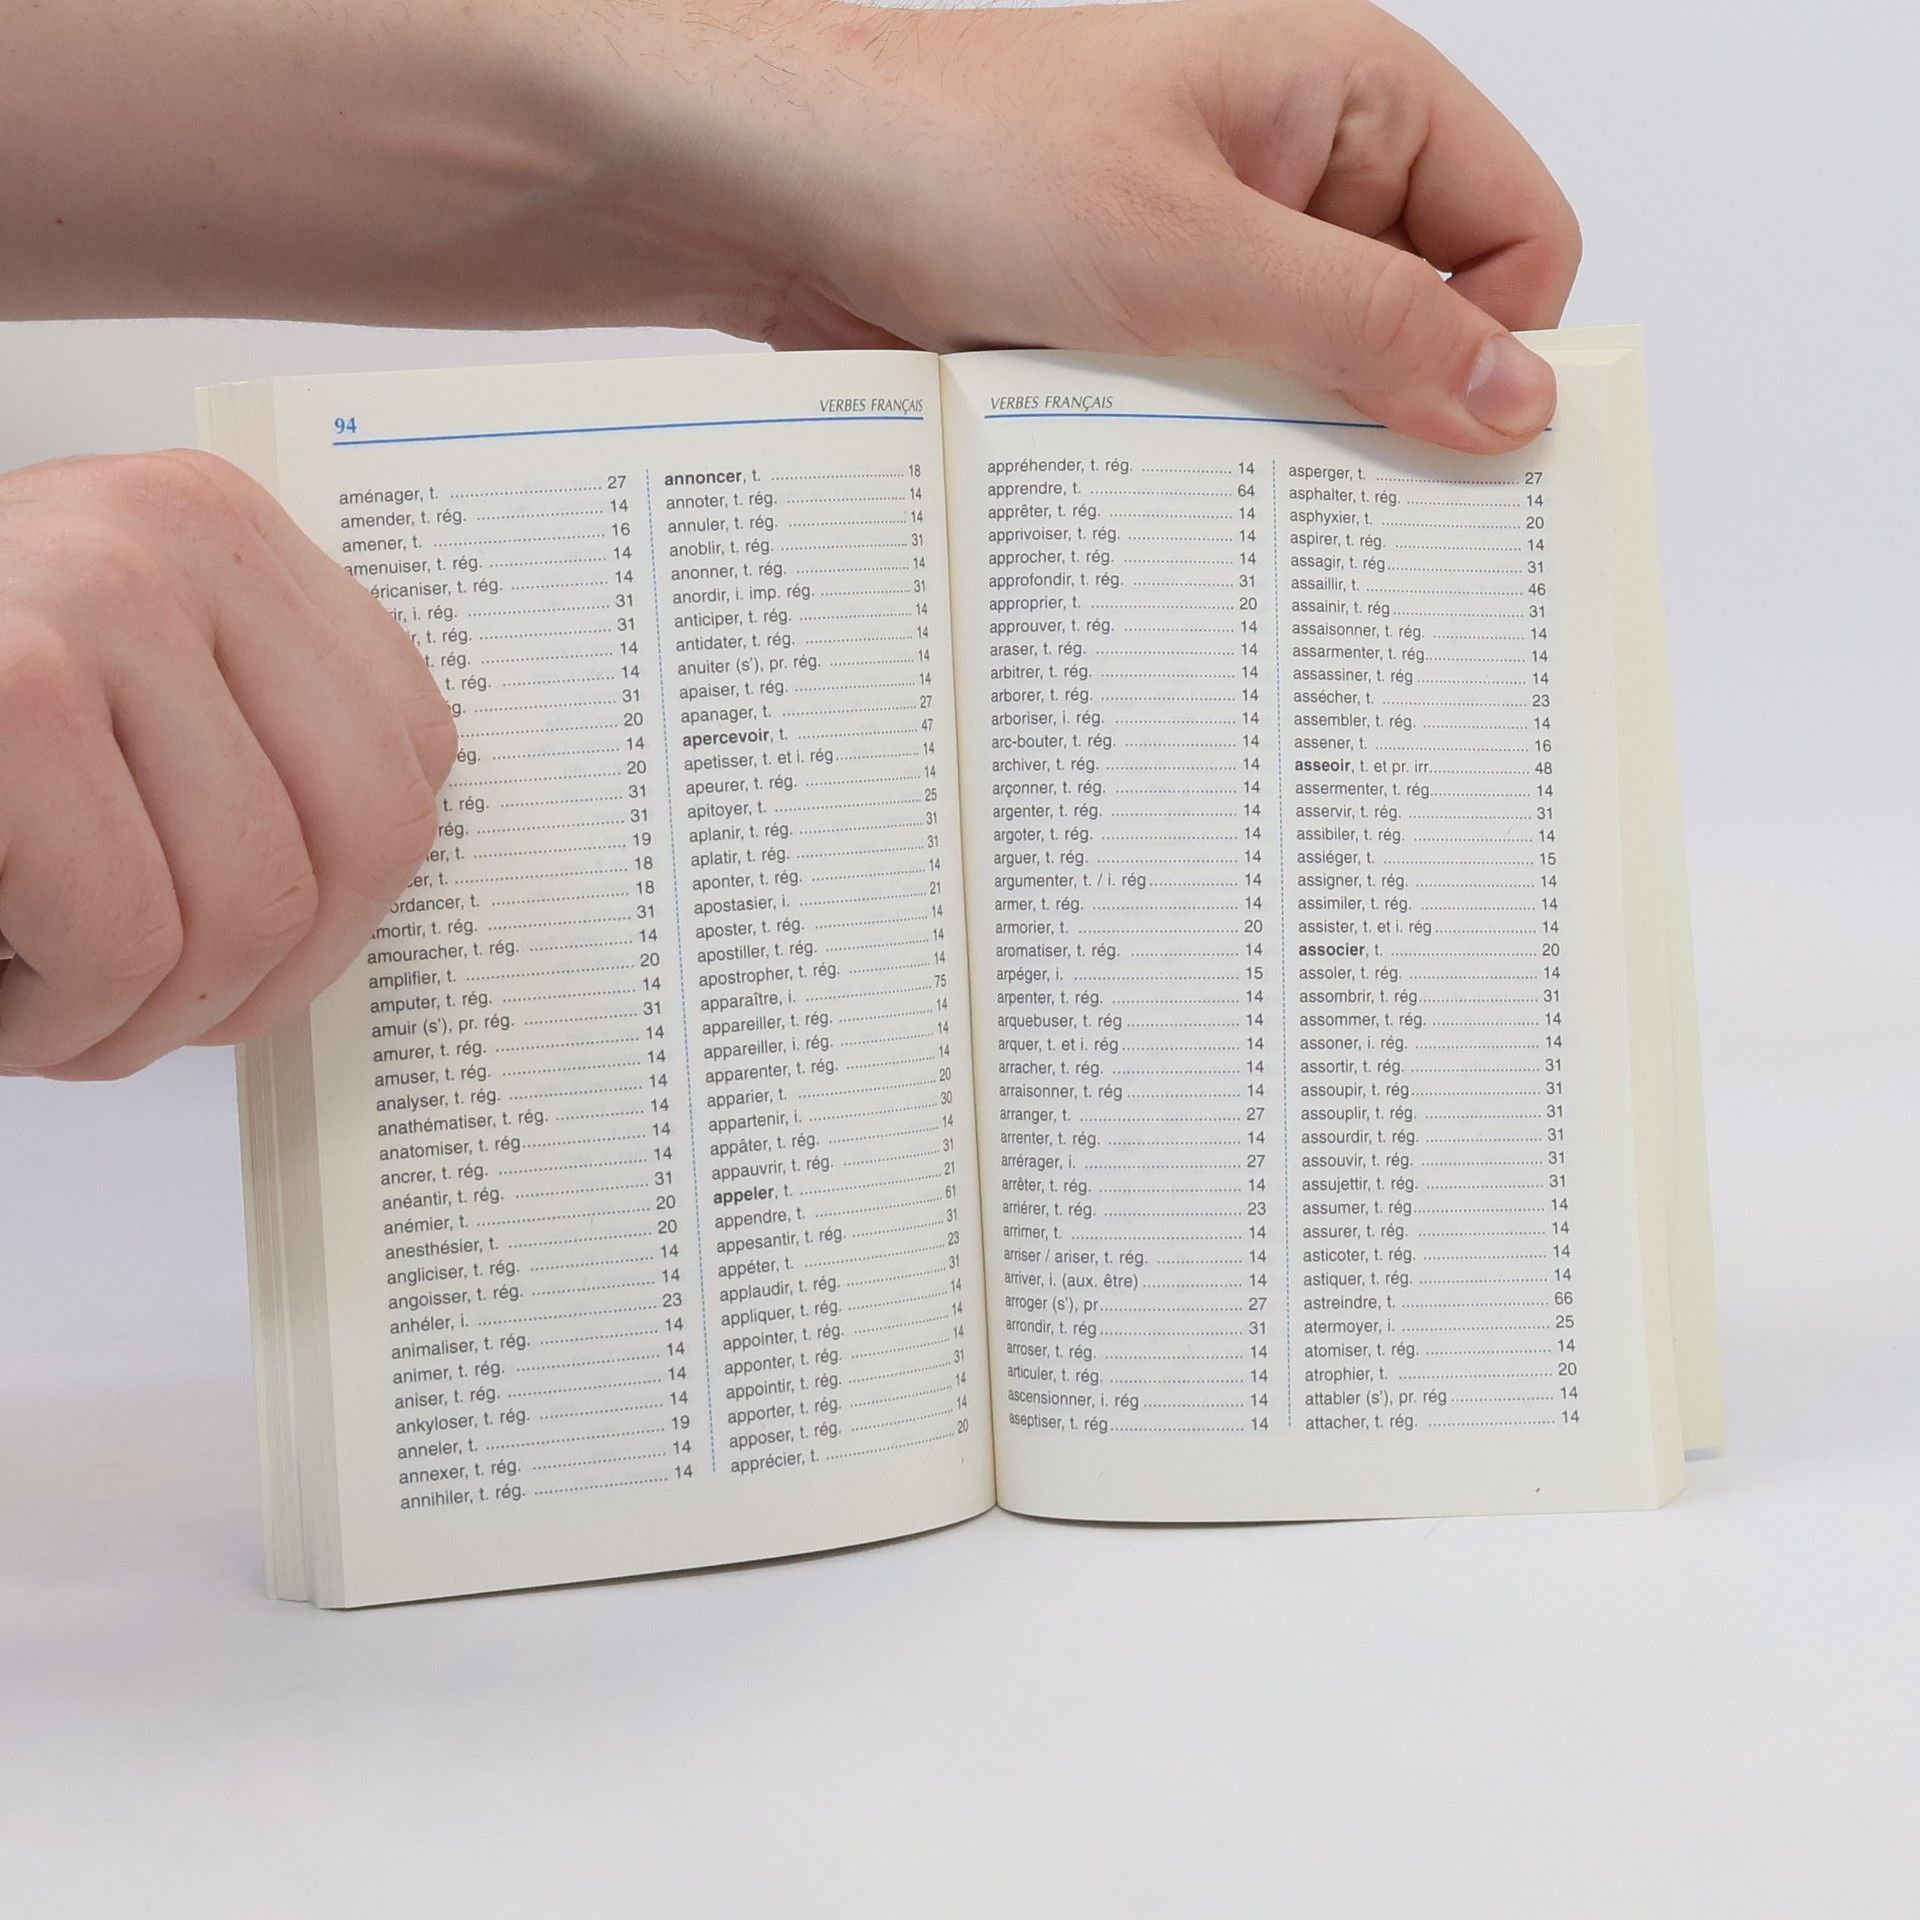 94
VERBES FRANÇAIS
aménager, t. 27
amender, t. rég. 14
amener, t. 16
amenuiser, t. rég. 14
t. rég. 14
i. rég. 31
t. rég. 31
t. rég. 14
t. rég. 14
31
20
14
20
t. rég. 31
rég. 31
t. 19
t. 18
t. 18
amortir, t. rég. 31
amouracher, t. rég. 14
amplifier, t. 20
amputer, t. rég. 14
amuir (s'), pr. rég. 31
amurer, t. rég. 14
amuser, t. rég. 14
analyser, t. rég. 14
anathématiser, t. rég. 14
anatomiser, t. rég. 14
ancrer, t. rég. 14
anéantir, t. rég. 31
anémier, t. 20
anesthésier, t. 20
angliciser, t. rég. 14
angoisser, t. rég. 14
anhéler, i. 23
animaliser, t. rég. 14
animer, t. rég. 14
aniser, t. rég. 14
ankyloser, t. rég. 14
anneler, t. 19
annexer, t. rég. 14
annihiler, t. rég. 14
annoncer, t. 18
annoter, t. rég. 14
annuler, t. rég. 14
anoblir, t. rég. 31
anonner, t. rég. 14
anordir, i. imp. rég. 31
anticiper, t. rég. 14
antidater, t. rég. 14
anuiter (s'), pr. rég. 14
apaiser, t. rég. 14
apanager, t. 27
apercevoir, t. 47
apetisser, t. et i. rég. 14
apeurer, t. rég. 14
apitoyer, t. 25
aplanir, t. rég. 31
aplatir, t. rég. 31
aponter, t. rég. 14
apostasier, i. 21
aposter, t. rég. 14
apostiller, t. rég. 14
apostropher, t. rég. 14
apparaître, i. 75
appareiller, t. rég. 14
appareiller, i. rég. 14
apparenter, t. rég. 14
apparier, t. 20
appartenir, i. 30
appâter, t. rég. 14
appauvrir, t. rég. 31
appeler, t. 21
appendre, t. 61
appesantir, t. rég. 31
appéter, t. 23
applaudir, t. rég. 31
appliquer, t. rég. 14
appointer, t. rég. 14
apponter, t. rég. 14
appointir, t. rég. 31
apporter, t. rég. 14
apposer, t. rég. 14
apprécier, t. 20
VERBES FRANÇAIS
appréhender, t. rég. 14
apprendre, t. 64
apprêter, t. rég. 14
apprivoiser, t. rég. 14
approcher, t. rég. 14
approfondir, t. rég. 31
approprier, t. 20
approuver, t. rég. 14
araser, t. rég. 14
arbitrer, t. rég. 14
arborer, t. rég. 14
arboriser, i. rég. 14
arc-bouter, t. rég. 14
archiver, t. rég. 14
arçonner, t. rég. 14
argenter, t. rég. 14
argoter, t. rég. 14
arguer, t. rég. 14
argumenter, t. / i. rég. 14
armer, t. rég. 14
armorier, t. 20
aromatiser, t. rég. 14
arpéger, i. 15
arpenter, t. rég. 14
arquebuser, t. rég 14
arquer, t. et i. rég 14
arracher, t. rég. 14
arraisonner, t. rég 14
arranger, t. 27
arrenter, t. rég. 14
arrérager, i. 27
arrêter, t. rég. 14
arriérer, t. rég. 23
arrimer, t. 14
arriser / ariser, t. rég. 14
arriver, i. (aux. être) 14
arroger (s'), pr. 27
arrondir, t. rég 31
arroser, t. rég. 14
articuler, t. rég. 14
ascensionner, i. rég 14
aseptiser, t. rég 14
asperger, t. 27
asphalter, t. rég. 14
asphyxier, t. 20
aspirer, t. rég. 14
assagir, t. rég 31
assaillir, t. 46
assainir, t. rég 31
assaisonner, t. rég. 14
assarmenter, t. rég. 14
assassiner, t. rég 14
assécher, t. 23
assembler, t. rég. 14
assener, t. 16
asseoir, t. et pr. irr. 48
assermenter, t. rég. 14
asservir, t. rég. 31
assibiler, t. rég. 14
assiéger, t. 15
assigner, t. rég. 14
assimiler, t. rég. 14
assister, t. et i. rég 14
associer, t. 20
assoler, t. rég. 14
assombrir, t. rég 31
assommer, t. rég. 14
assoner, i. rég. 14
assortir, t. rég. 31
assoupir, t. rég. 31
assouplir, t. rég. 31
assourdir, t. rég. 31
assouvir, t. rég. 31
assujettir, t. rég. 31
assumer, t. rég. 14
assurer, t. rég. 14
asticoter, t. rég. 14
astiquer, t. rég. 14
astreindre, t. 66
atermoyer, i. 25
atomiser, t. rég. 14
atrophier, t. 20
attabler (s'), pr. rég 14
attacher, t. rég. 14